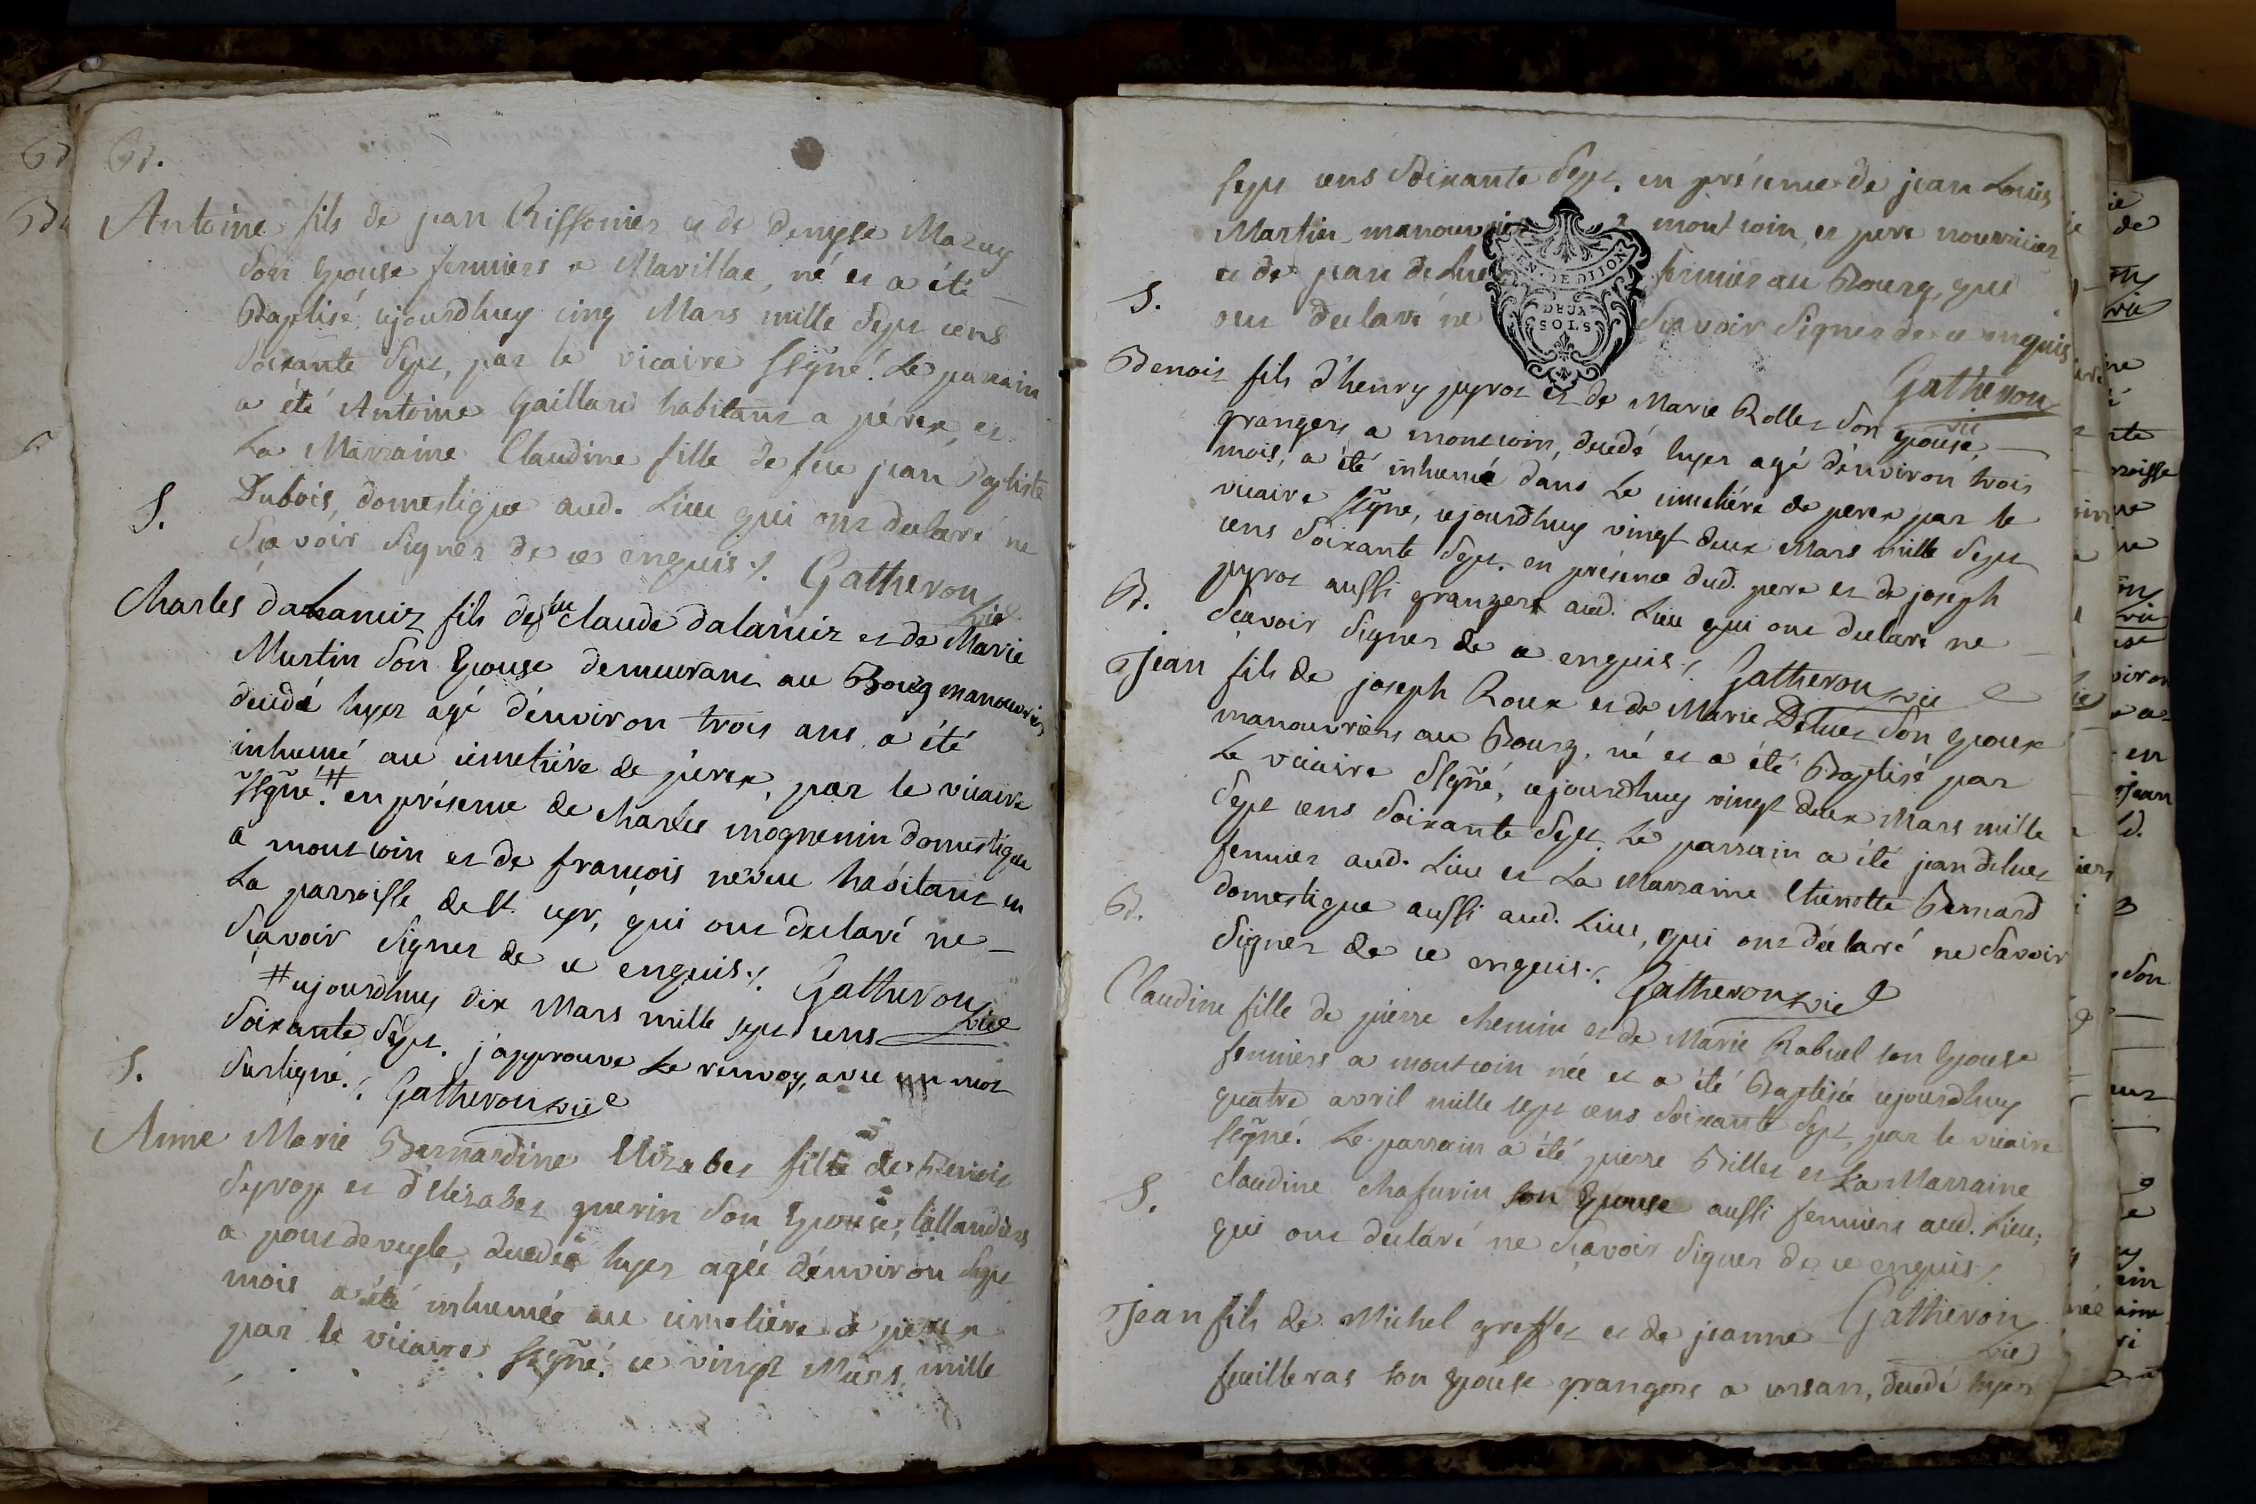 B.
Antoine fils de jean Riffonier et de denyse Mazuy
son Epouse fermiers a Marillac, né et a été
Baptisé, cejourdhuy cinq Mars mille Sept cens
Soixante Sept, par le vicaire ssigné. Le parrain
a été Antoine Gaillard habitant a pérex, et
La Marraine Claudine fille de feu jean Baptiste
Dubois, domestique aud. Lieu qui ont declaré ne
S.
Scavoir Signer de ce enquis ./. Gatheron vic
Charles dalamiz fils de feu claude dalamiz et de Marie
Martin Son Epouse demeurant au Bourg manouvriers
decedé hyer agé d'environ trois ans a été
inhumé au cimetiére de pérex, par le vicaire
ssigné. # en présence de charles mognenin domestique
a montcoin et de francois neveu habitant en
La parroisse de st. cyr, qui ont declaré ne
Scavoir Signer de ce enquis ./. Gatheron vic
# cejourdhuy dix Mars mille sept cens
Soixante Sept. j'approuve Le renvoy, avec un mot
Surligné ./. Gatheron vice
S.
Anne Marie Bernardine Elizabet fille de Benoit
Sevroy et d'Elizabet guerin Son Epouse, taillandiers
a pont de veyle, decedée hyer agée d'environ Sept
mois a été inhumée au cimetiére de pérex
par le vicaire ssigné. ce vingt Mars, mille
sept cens Soixante Sept. en présence de jean Louis
Martin manouvrier montcoin, et pere nourricier
et de jean deluez fermier au Bourg, qui
S.
ont declaré ne Scavoir Signer de ce enquis
GEN. DE DIJON
DEUX
SOLS
Gatheron
vic
Benoit fils d'henry pyrot et de Marie Rollet Son Epouse,
grangers a montcoin, decedé hyer agé d'environ trois
mois, a été inhumé dans Le cimetiére de perex par le
vicaire ssigné, cejourdhuy vingt deux Mars mille Sept
cens Soixante Sept. en présence dud. pere et de joseph
pyrot aussi granger aud. Lieu qui ont declaré ne
B.
Scavoir Signer de ce enquis ./. Gatheron vic
jean fils de joseph Roux et de Marie Deluez Son Epouse
manouvriers au Bourg, né et a été Baptisé par
Le vicaire ssigné, cejourdhuy vingt deux Mars mille
Sept cens Soixante Sept. Le parrain a été jean deluez
fermier aud. Lieu et La Marraine Etiennette Bernard
domestique aussi aud. Lieu, qui ont declaré ne Scavoir
B.
Signer de ce enquis ./. Gatheron vic
Claudine fille de pierre chemin et de Marie Rabuel son Epouse
fermiers a montcoin née et a été Baptisée cejourdhuy
quatre avril mille sept cens Soixante Sept, par le vicaire
ssigné. Le parrain a été pierre Billet et La Marraine
claudine chafurin son Epouse aussi fermiers aud. Lieu,
S.
qui ont declaré ne Scavoir Signer de ce enquis ./.
Gatheron
vic
jean fils de Michel greffet et de jeanne
feuilleras son Epouse grangers a corsan, decedé hyer